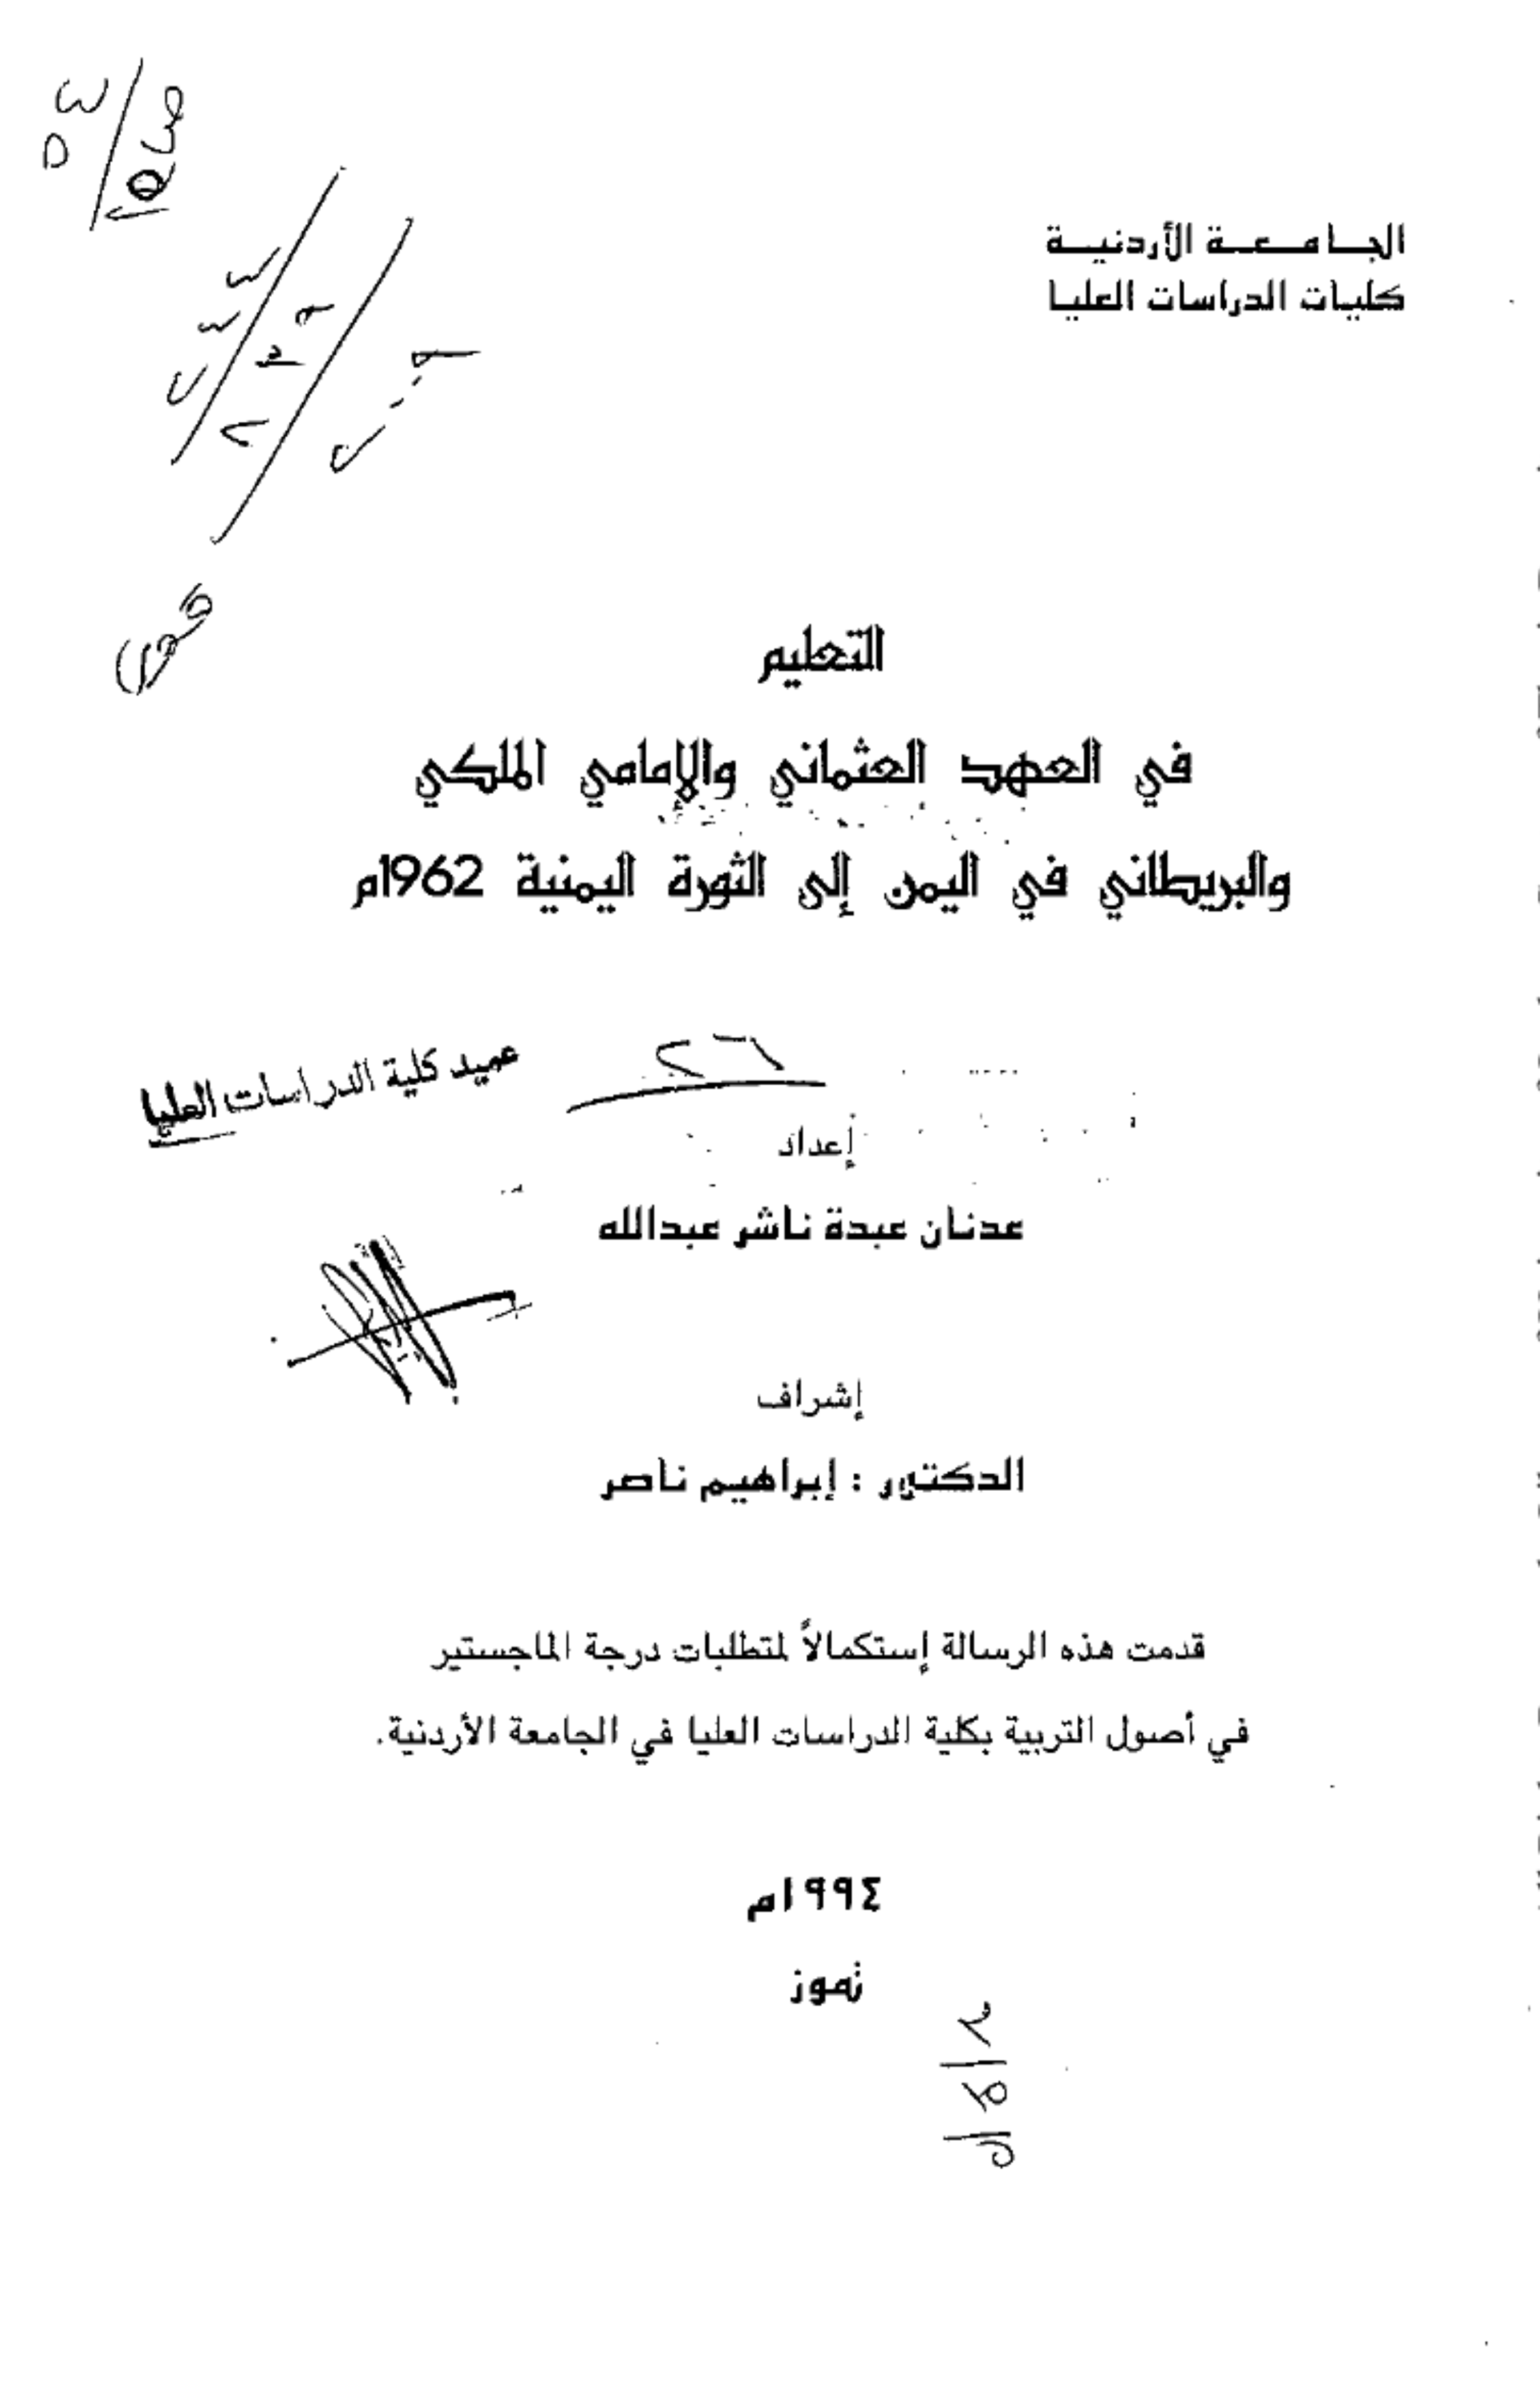 الجامعة الأردنية
كليات الدراسات العليا
التعليم
في العهد العثماني والإمامي الملكي
والبريطاني في اليمن إلى الثورة اليمنية 1962م
عميد كلية الدراسات العليا
إعداد
عدنان عبدة ناشر عبدالله
إشراف
الدكتور : إبراهيم ناصر
قدمت هذه الرسالة إستكمالاً لمتطلبات درجة الماجستير
في أصول التربية بكلية الدراسات العليا في الجامعة الأردنية.
١٩٩٤م
تموز